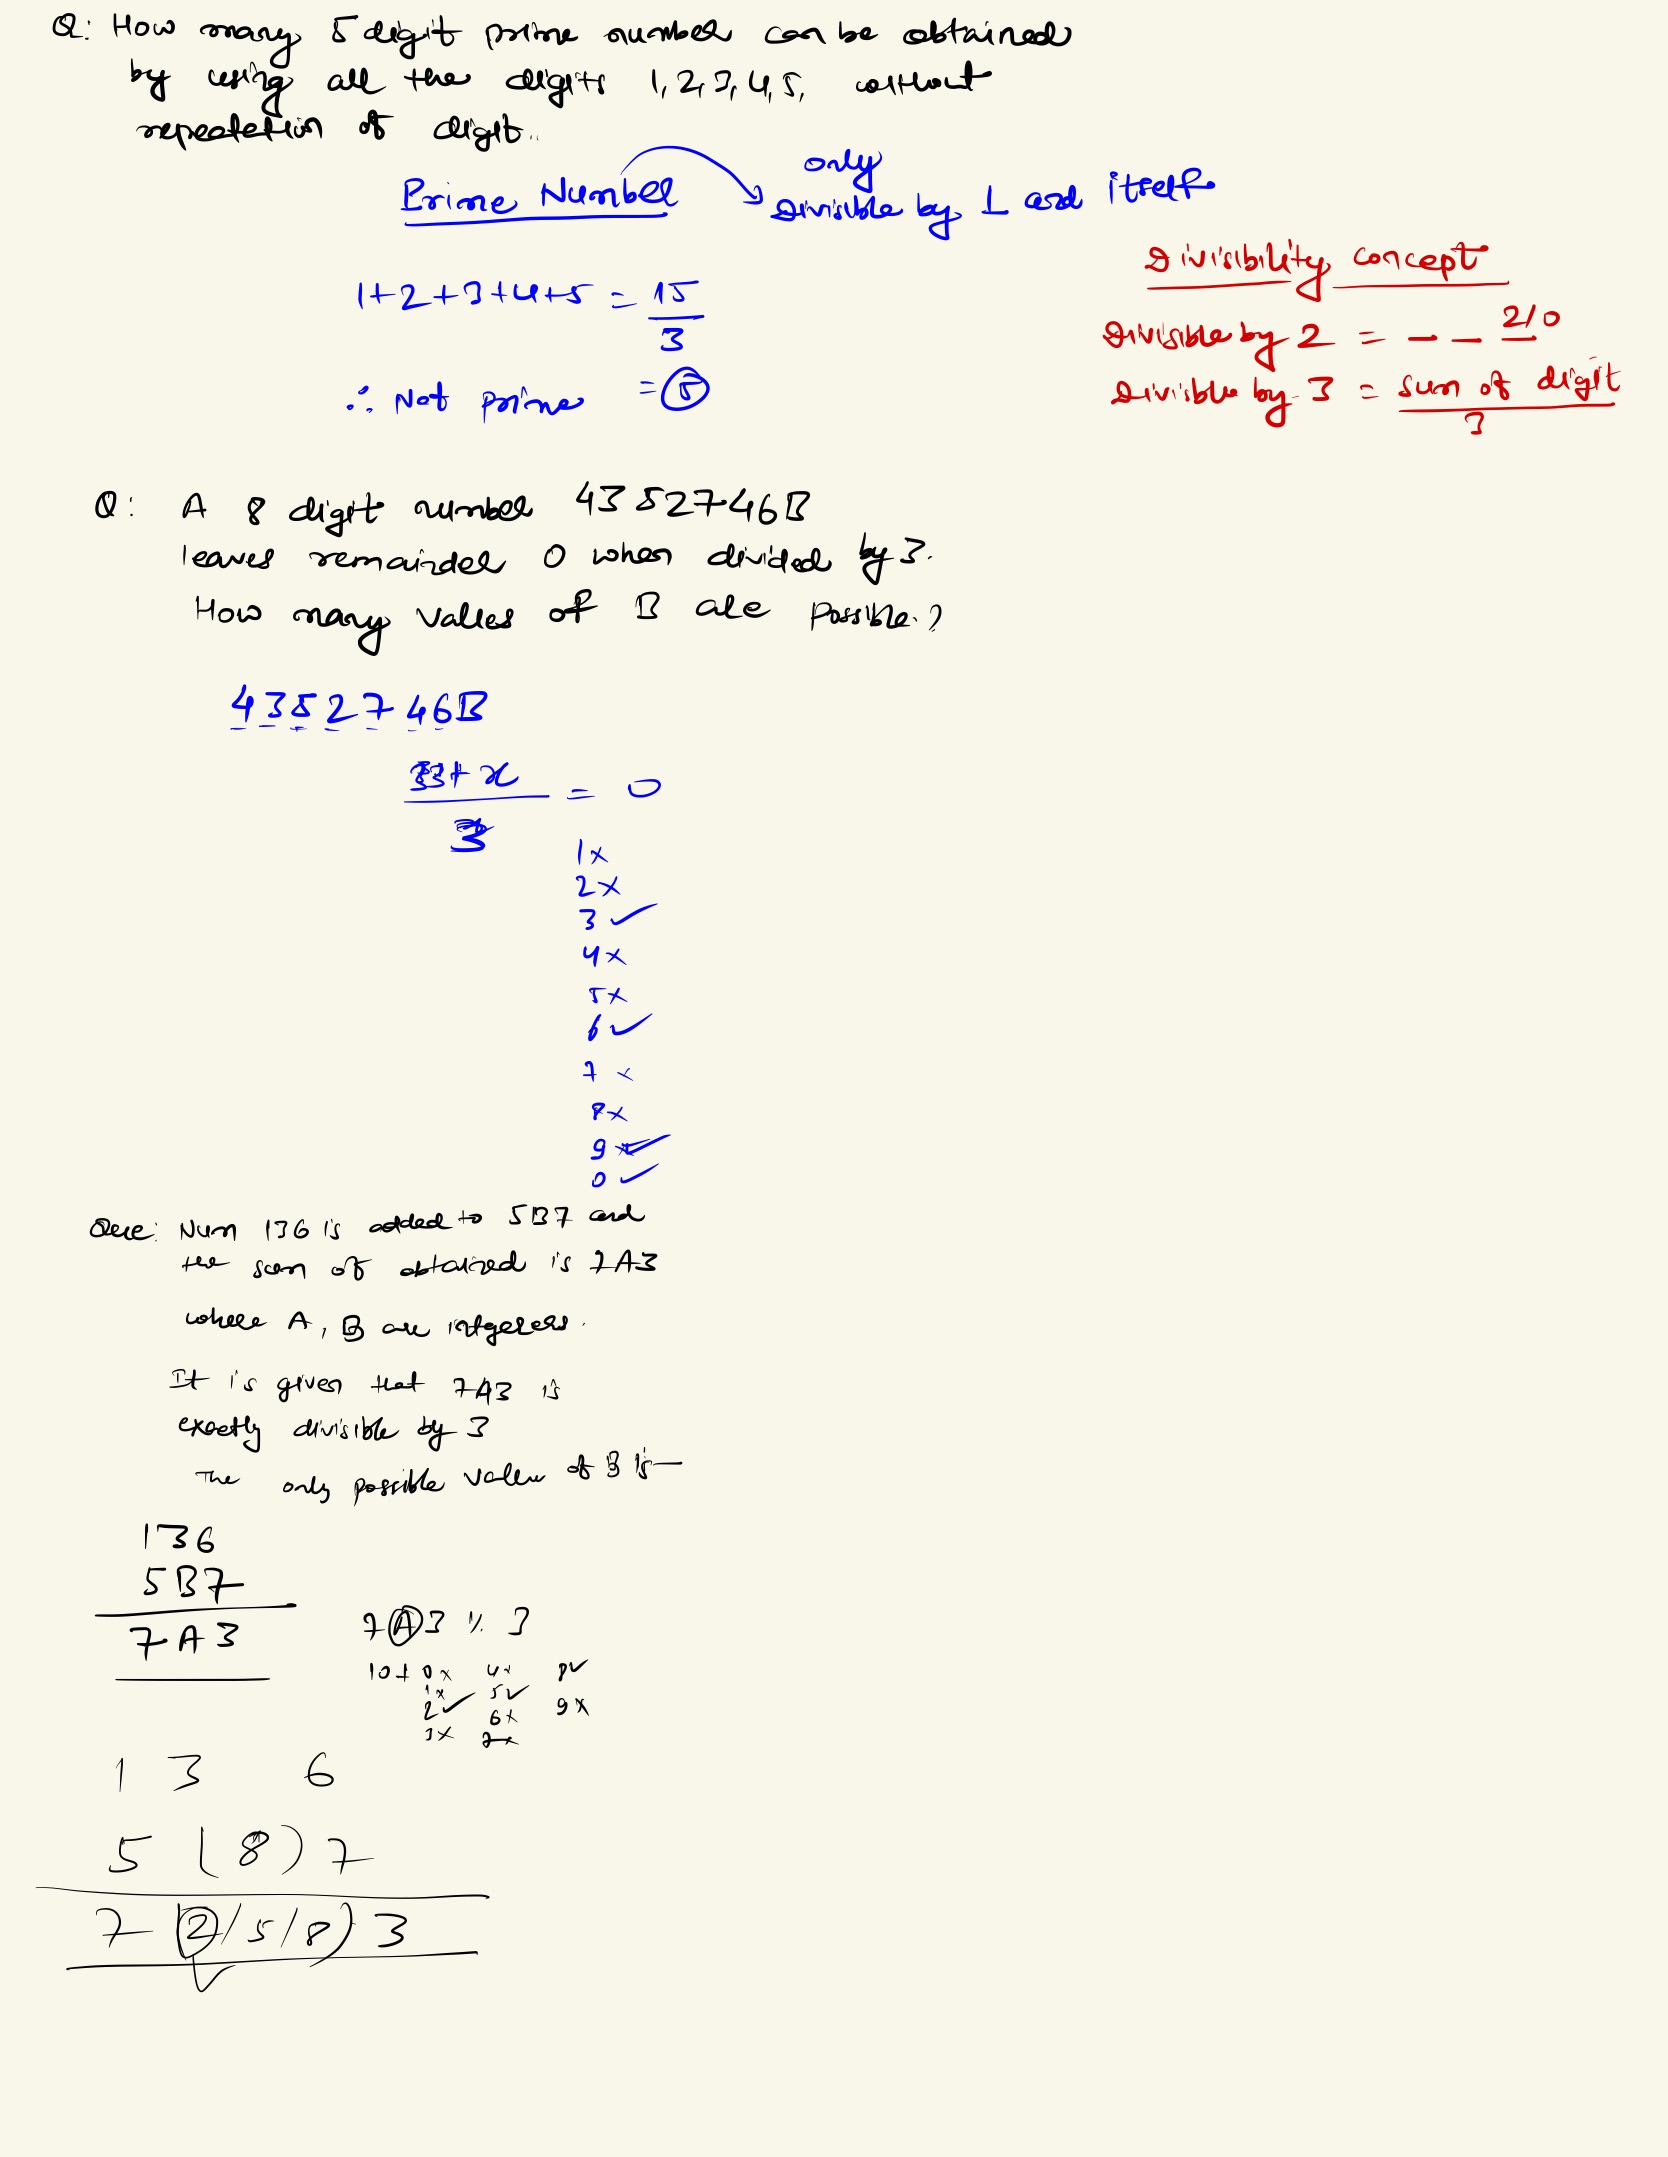 Q: How many 5 digit prime number can be obtained
by using all the digits 1,2,3,4,5, without
repeatetion of digit..
only
Prime Number
Divisible by 1 and itself
Divisibility concept
1+2+3+4+5 = 15
3
Divisible by 2 = – – 2/0
Divisible by 3 = sum of digit
3
∴ Not prime = 5
Q: A 8 digit number 4352746B
leaves remainder 0 when divided by 3.
How many values of B are possible.?
4352746B
33+x = 0
3
1 ×
2 ×
3 ✓
4 ×
5 ×
6 ✓
7 ×
8 ×
9 ✓
0 ✓
Que: Num 136 is added to 5B7 and
the sum of obtained is 7A3
where A, B are intgeress.
It is given that 7A3 is
exactly divisible by 3
The only possible value of B is —
136
5B7
7A3
7A3 % 3
10+ 0× 4× 8✓
1× 5✓
2✓ 6× 9×
3× 7×
1 3 6
5 (8) 7
7 (2/5/8) 3